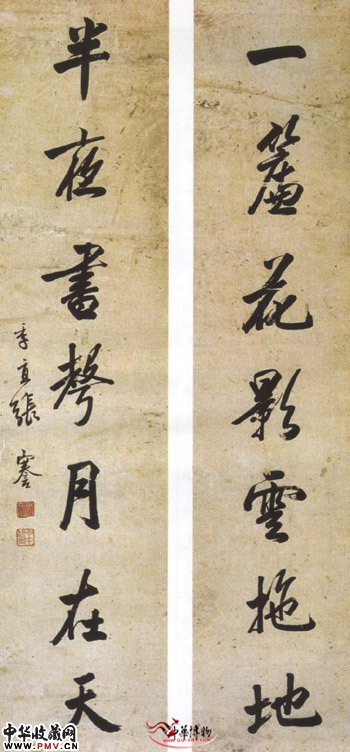 一簾花影雲拖地
半夜書聲月在天
季直張謇
中华收藏网
www.PMV.CN
中华博物